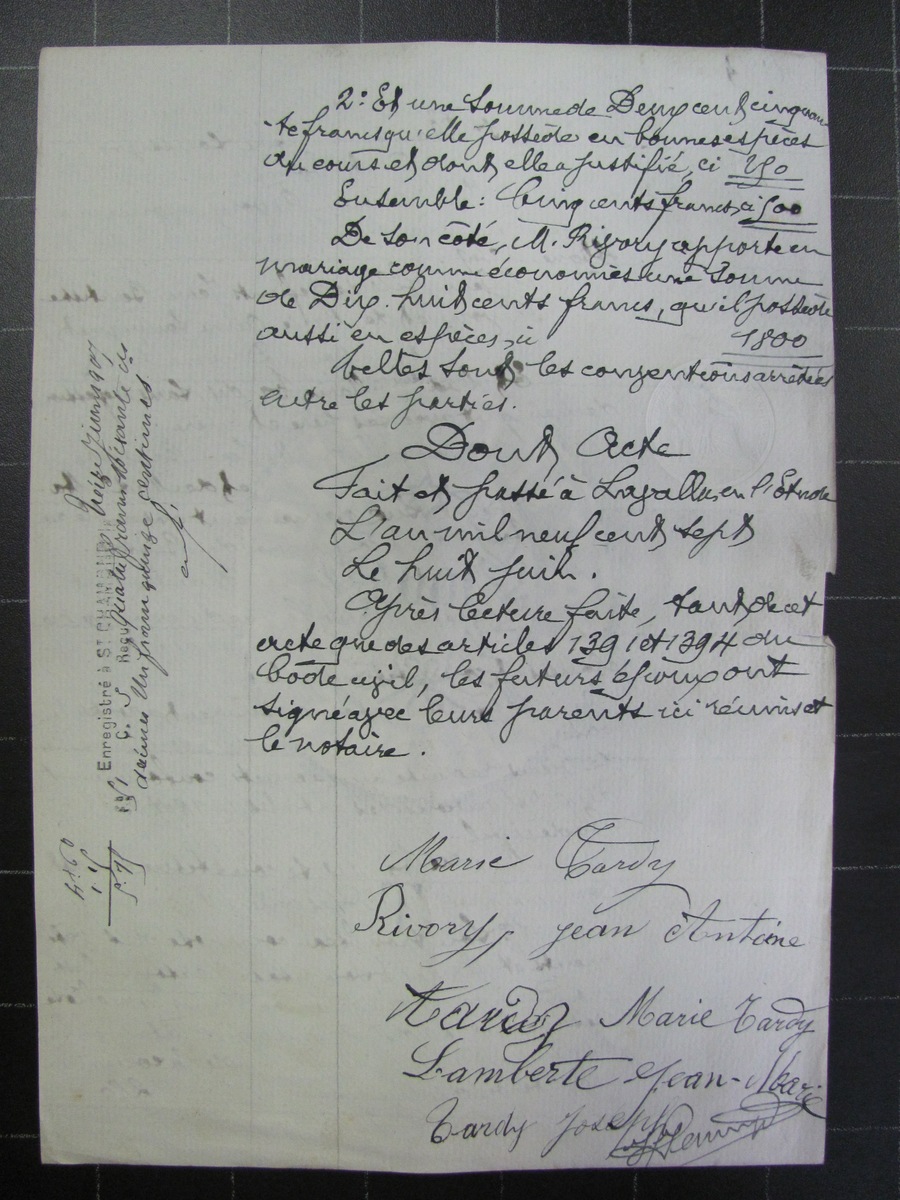 2° Et une somme de Deux cent cinquan-
te francs qu'elle possède en bonnes espèces
du cours et dont elle a justifié, ci 250
Ensemble: Cinq cents francs, ci 500
De son côté, M. Rivory apporte en
mariage comme économies une somme
de Dix-huit cents francs, qu'il possède
aussi en espèces, ci 1800
Telles sont les conventions arrêtées
entre les parties.
Dont Acte
Fait et passé à Lavalla, en l'Etude
L'an mil neuf cent sept
Le huit juin.
Après lecture faite, tant de cet
acte que des articles 1391 et 1394 du
Code civil, les futurs époux ont
signé avec leurs parents ici réunis et
le notaire.
Marie Tardy
Rivory Jean Antoine
Tardy Marie Tardy
Lamberte Jean-Marie
Tardy Joseph
Enregistré à St CHAMOND treize Juin 1907
Reçu quatre francs soixante c.
décimes Un franc quinze centimes
4.60
1.15
5.75